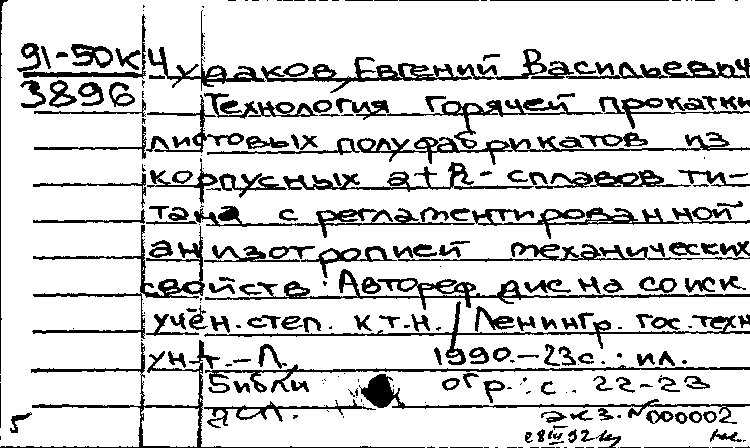 91-50К Чудаков, Евгений Васильевич
3896 Технология горячей прокатки
листовых полуфабрикатов из
корпусных α+β-сплавов ти-
тана с регламентированной
анизотропией механических
свойств: Автореф. дис на соиск
учён. степ. к.т.н. / Ленингр. гос. техн
ун-т. – Л., 1990. – 23с.: ил.
Библи огр.: с. 22-23
ДСП. экз. №000002
5 28 III 92